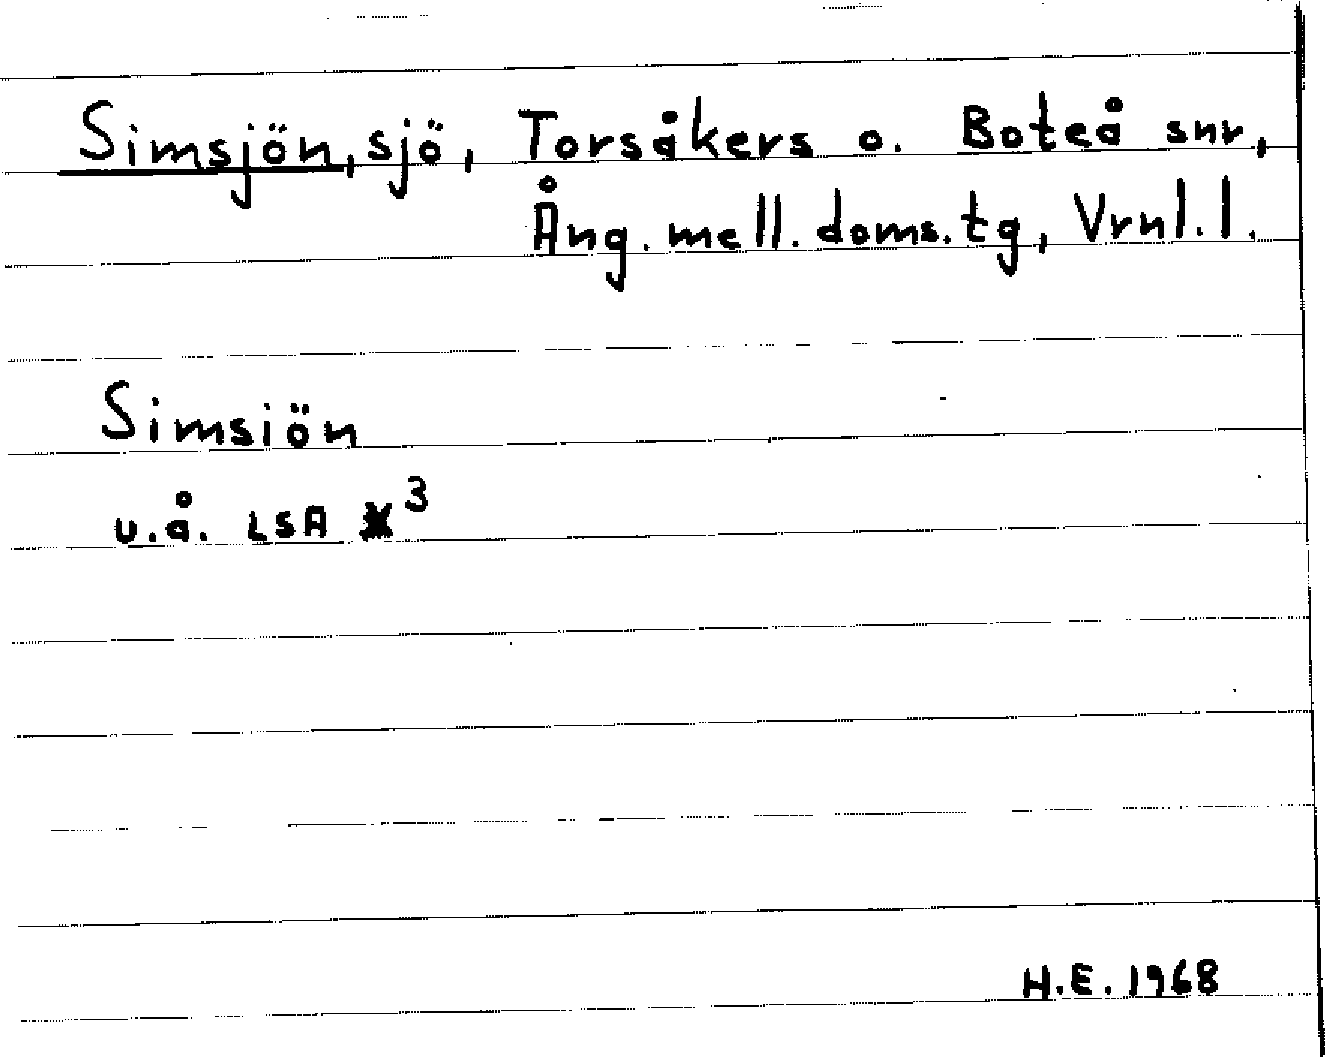 Simsjön, sjö, Torsåkers o. Boteå snr,
Ång. mell. doms. tg, Vrnl. l.
Simsiön
u.å. LSA X³
H.E. 1968